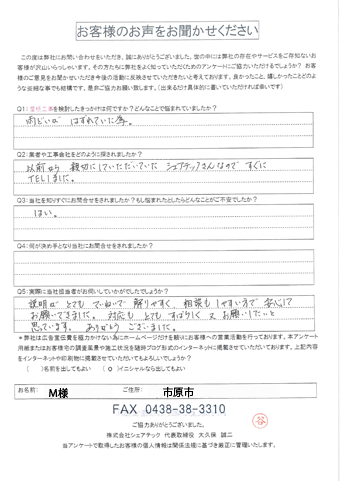 お客様のお声をお聞かせください
この度は弊社にお問い合わせをいただき、誠にありがとうございました。世の中には弊社の存在やサービスをご存知ないお
客様が沢山いらっしゃいます。その方たちに弊社をよく知っていただくためのアンケートにご協力いただけるでしょうか？ お客
様のご意見をお聞かせいただき今後の活動に反映させていただきたいと考えております。良かったこと、嬉しかったことどのよ
うな些細な事でも結構です。是非ご協力お願い致します。（出来るだけ具体的に書いていただければ幸いです）
Q1：
を検討したきっかけは何ですか？どんなことで悩まれていましたか？
雨どいが はずれていた為。
Q2：業者や工事会社をどのように探されましたか？
以前から 親切にしていただいていた シェアテックさんなので すぐに
TELしました。
Q3：当社を知りすぐにお問合せをされましたか？もし悩まれたとしたらどんなことがご不安でしたか？
はい。
Q4：何が決め手となり当社にお問合せをされましたか？
Q5：実際に当社担当者がお伺いしていかがでしたでしょうか？
説明が とても ていねいで 解りやすく 相談も しやすい方で 安心して
お願いできました。 対応も とても すばらしく 又 お願いしたいと
思っています。 ありがとう ございました。
＊弊社は広告宣伝費を極力かけない為にホームページだけを頼りにお客様への営業活動を行っております。本アンケート
用紙またはお客様宅の調査風景や施工状況を随時ブログ形式のインターネットに掲載させていただいております。上記内容
をインターネットや印刷物に掲載させていただいてもよろしいでしょうか？
（ ）名前を出してもよい （○）イニシャルなら出してもよい
お名前： M様 ご住所： 市原市
FAX 0438-38-3310
ご協力ありがとうございました。
株式会社シェアテック 代表取締役 大久保 誠二
当アンケートで取得したお客様の個人情報は関係法規に基づき厳正に管理いたします。